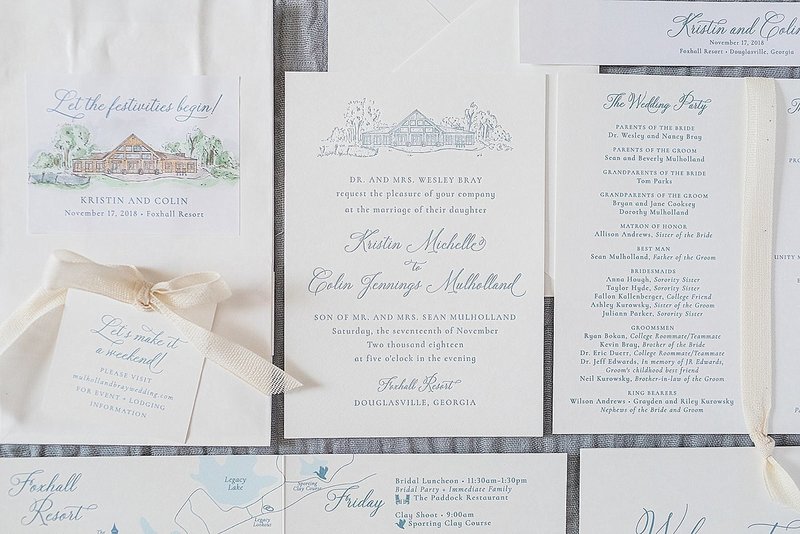 Let the festivities begin!
KRISTIN AND COLIN
November 17, 2018 • Foxhall Resort
Let's make it
a weekend!
PLEASE VISIT
mulhollandbraywedding.com
FOR EVENT + LODGING
INFORMATION
DR. AND MRS. WESLEY BRAY
request the pleasure of your company
at the marriage of their daughter
Kristin Michelle
to
Colin Jennings Mulholland
SON OF MR. AND MRS. SEAN MULHOLLAND
Saturday, the seventeenth of November
Two thousand eighteen
at five o'clock in the evening
Foxhall Resort
DOUGLASVILLE, GEORGIA
Kristin and Colin
November 17, 2018
Foxhall Resort • Douglasville, Georgia
The Wedding Party
PARENTS OF THE BRIDE
Dr. Wesley and Nancy Bray
PARENTS OF THE GROOM
Sean and Beverly Mulholland
GRANDPARENTS OF THE BRIDE
Tom Parks
GRANDPARENTS OF THE GROOM
Bryan and Jane Cooksey
Dorothy Mulholland
MATRON OF HONOR
Allison Andrews, Sister of the Bride
BEST MAN
Sean Mulholland, Father of the Groom
BRIDESMAIDS
Anna Hough, Sorority Sister
Taylor Hyde, Sorority Sister
Fallon Kallenberger, College Friend
Ashley Kurowsky, Sister of the Groom
Juliann Parker, Sorority Sister
GROOMSMEN
Ryan Bokan, College Roommate/Teammate
Kevin Bray, Brother of the Bride
Dr. Eric Duett, College Roommate/Teammate
Dr. Jeff Edwards, In memory of JR Edwards,
Groom's childhood best friend
Neil Kurowsky, Brother-in-law of the Groom
RING BEARERS
Wilson Andrews • Grayden and Riley Kurowsky
Nephews of the Bride and Groom
Foxhall
Resort
Legacy
Lake
Legacy
Lookout
Sporting
Clay Course
Friday
Bridal Luncheon • 11:30am-1:30pm
Bridal Party + Immediate Family
The Paddock Restaurant
Clay Shoot • 9:00am
Sporting Clay Course